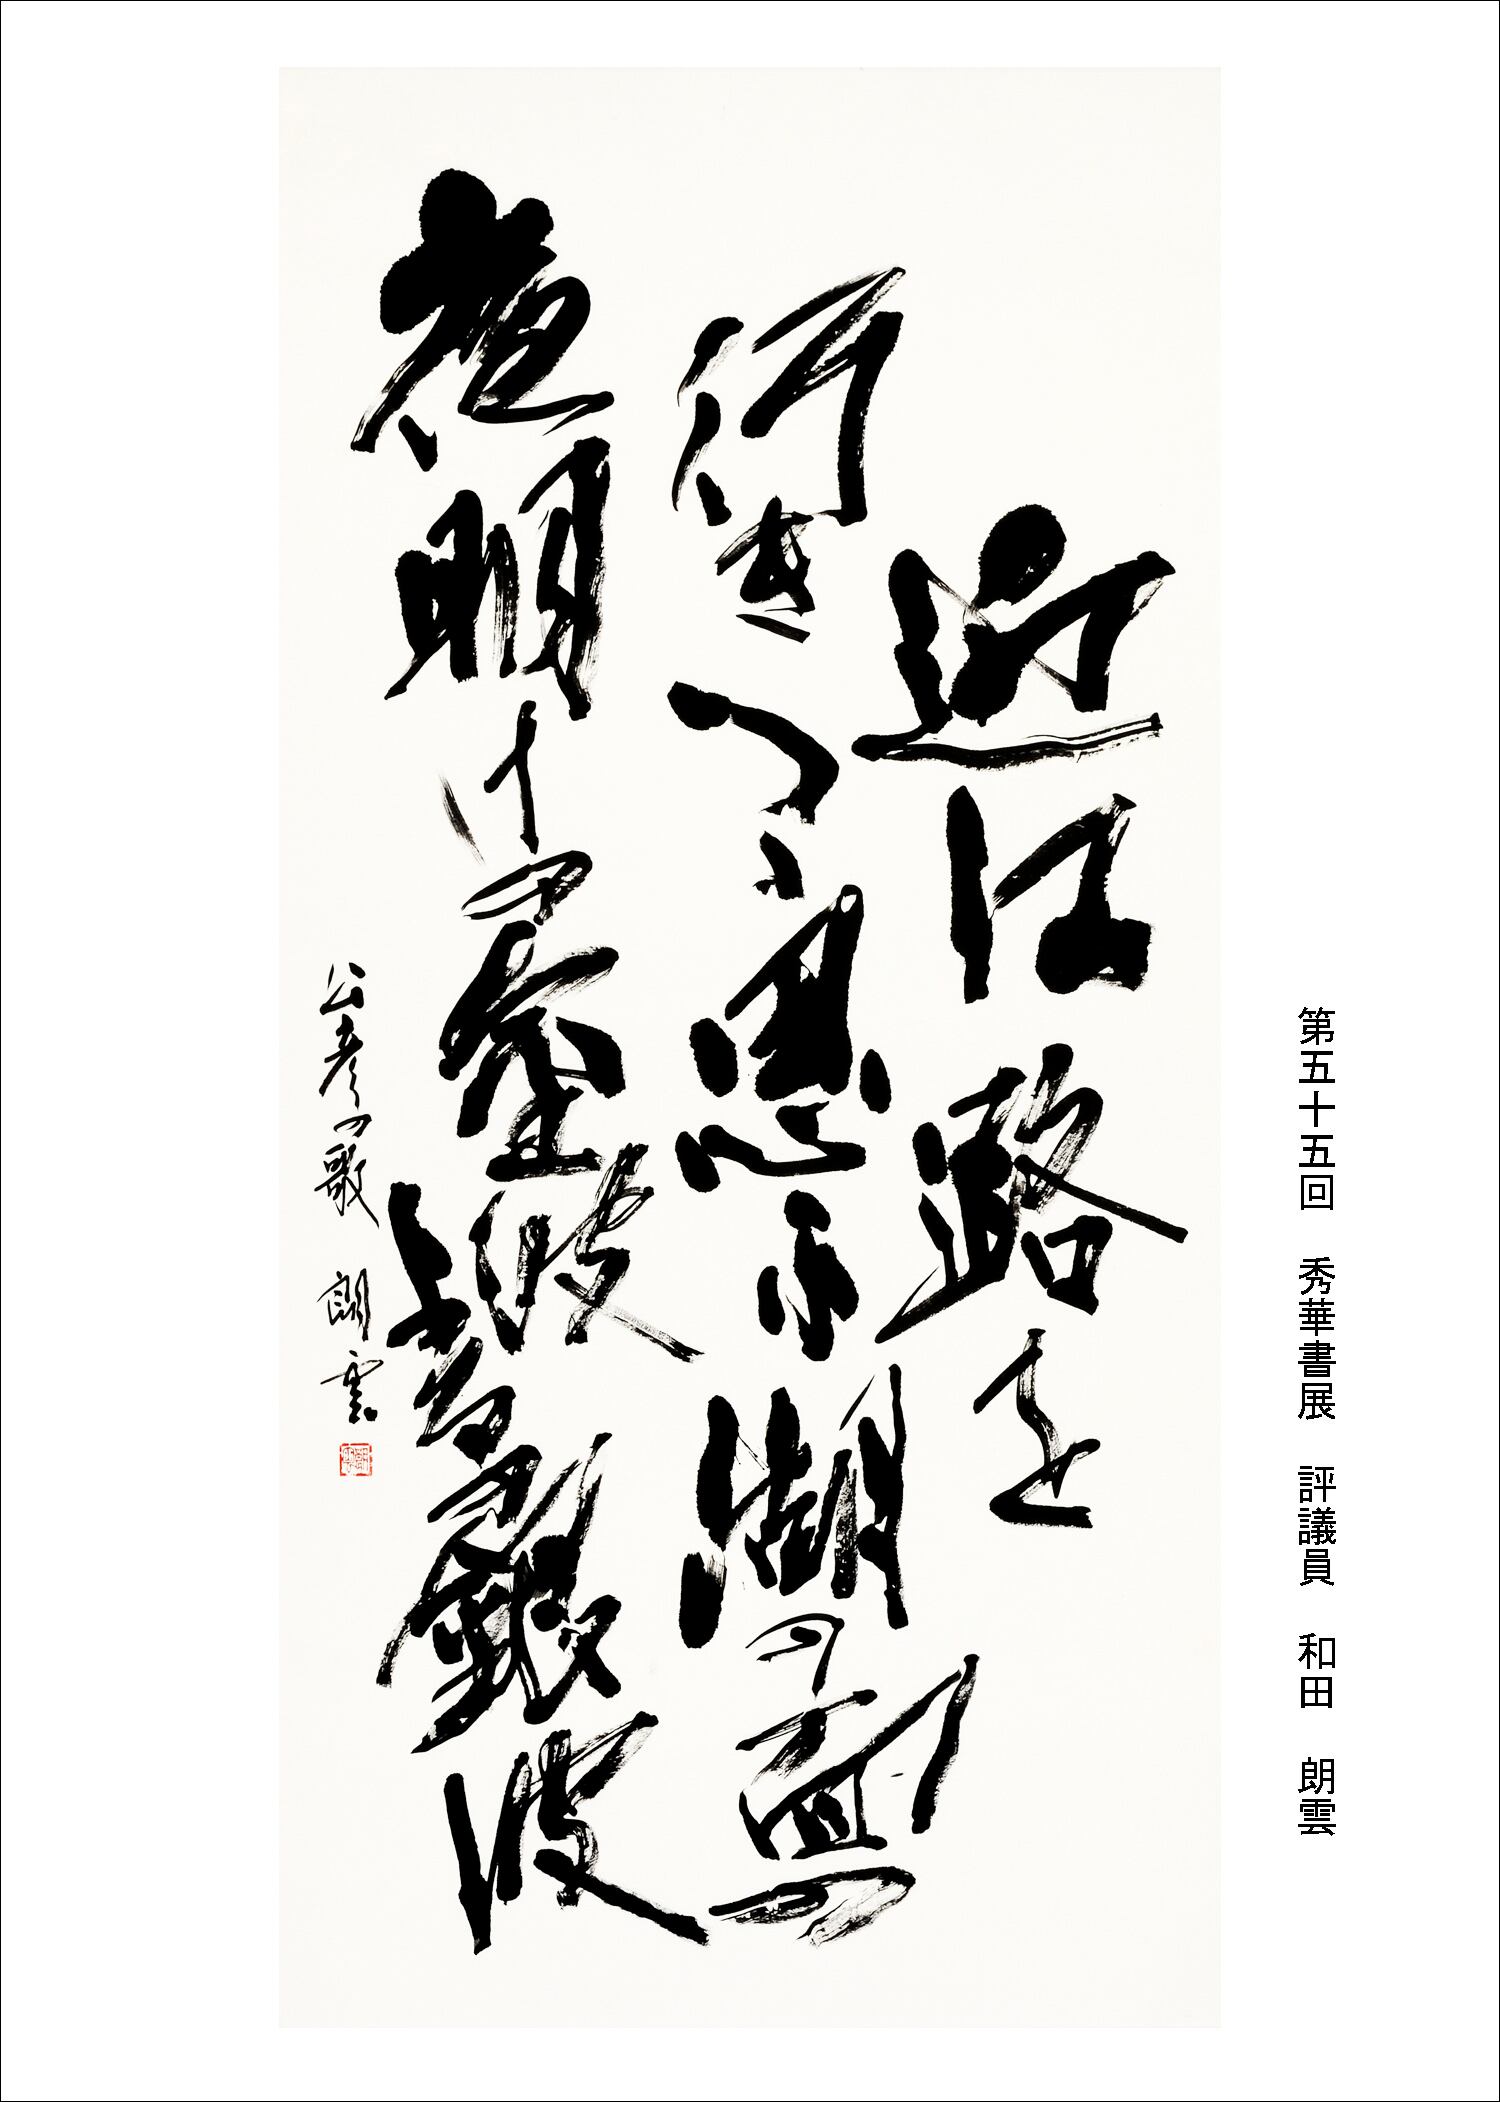 第五十五回 秀華書展 評議員 和田 朗雲
近江路を
行きつゝ思ふ湖の
夜明けの金波 銀波
公彦の歌 朗雲